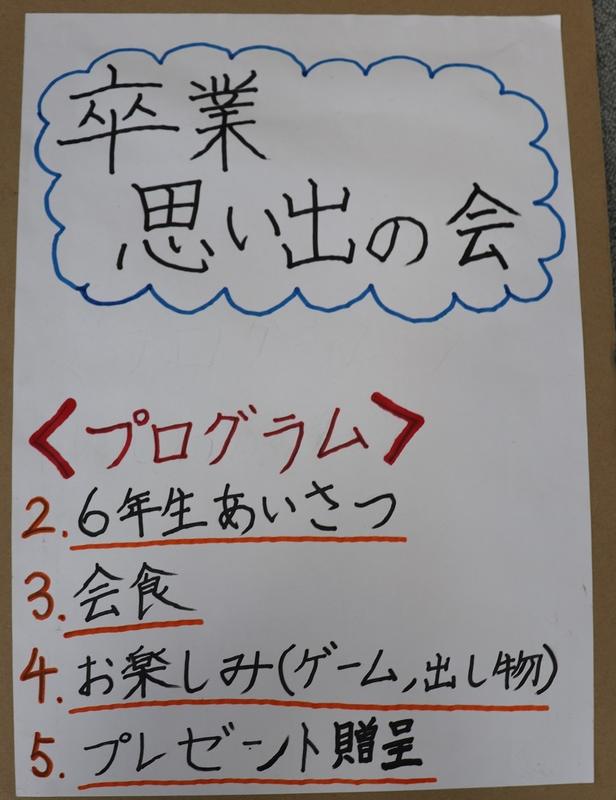 卒業
思い出の会
<プログラム>
2. 6年生あいさつ
3. 会食
4. お楽しみ(ゲーム,出し物)
5. プレゼント贈呈